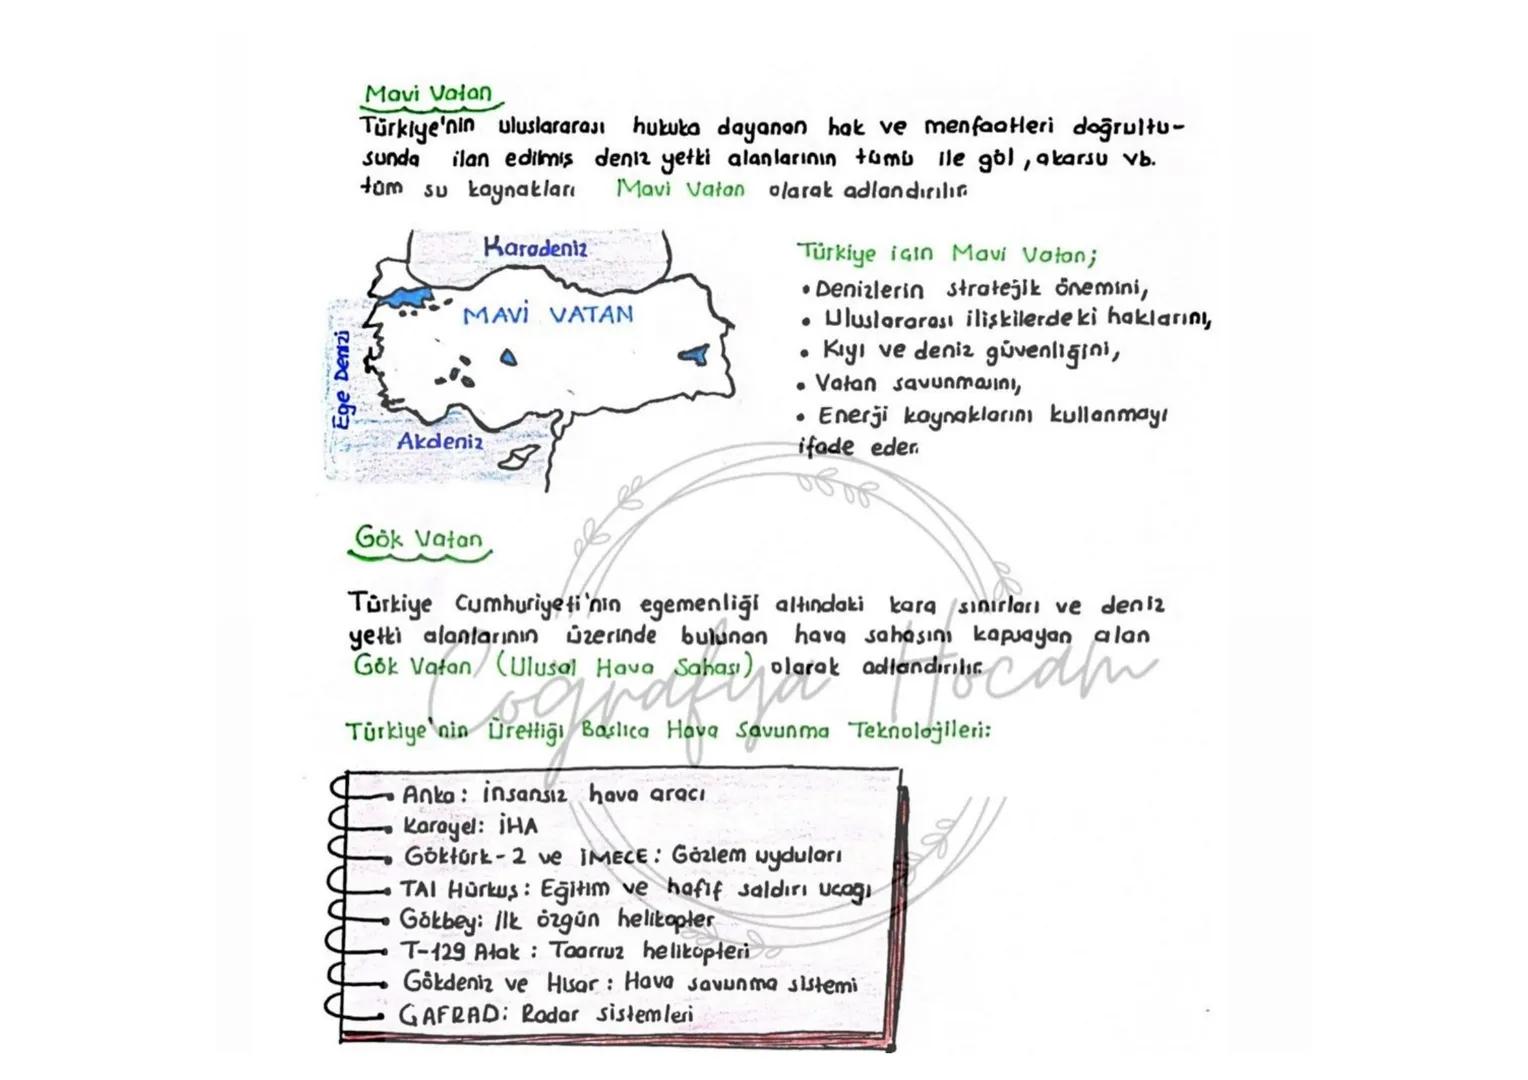 Mavi Vatan
Türkiye'nin uluslararası hukuka dayanan hak ve menfaatleri doğrultu-
sunda ilan edilmiş deniz yetki alanlarının tümü ile göl, akarsu vb.
tüm su kaynakları Mavi Vatan olarak adlandırılır.
Karadeniz
MAVİ VATAN
Ege Denizi
Akdeniz
Türkiye için Mavi Vatan;
• Denizlerin stratejik önemini,
• Uluslararası ilişkilerdeki haklarını,
• Kıyı ve deniz güvenliğini,
• Vatan savunmasını,
• Enerji kaynaklarını kullanmayı
ifade eder.
Gök Vatan
Türkiye Cumhuriyeti'nin egemenliği altındaki kara sınırları ve deniz
yetki alanlarının üzerinde bulunan hava sahasını kapsayan alan
Gök Vatan (Ulusal Hava Sahası) olarak adlandırılır.
Coğrafya Hocam
Türkiye'nin Ürettiği Başlıca Hava Savunma Teknolojileri:
• Anka: İnsansız hava aracı
• Karayel: İHA
• Göktürk-2 ve İMECE: Gözlem uyduları
• TAI Hürkuş: Eğitim ve hafif saldırı uçağı
• Gökbey: İlk özgün helikopter
• T-129 Atak: Taarruz helikopteri
• Gökdeniz ve Hisar: Hava savunma sistemi
• GAFRAD: Radar sistemleri